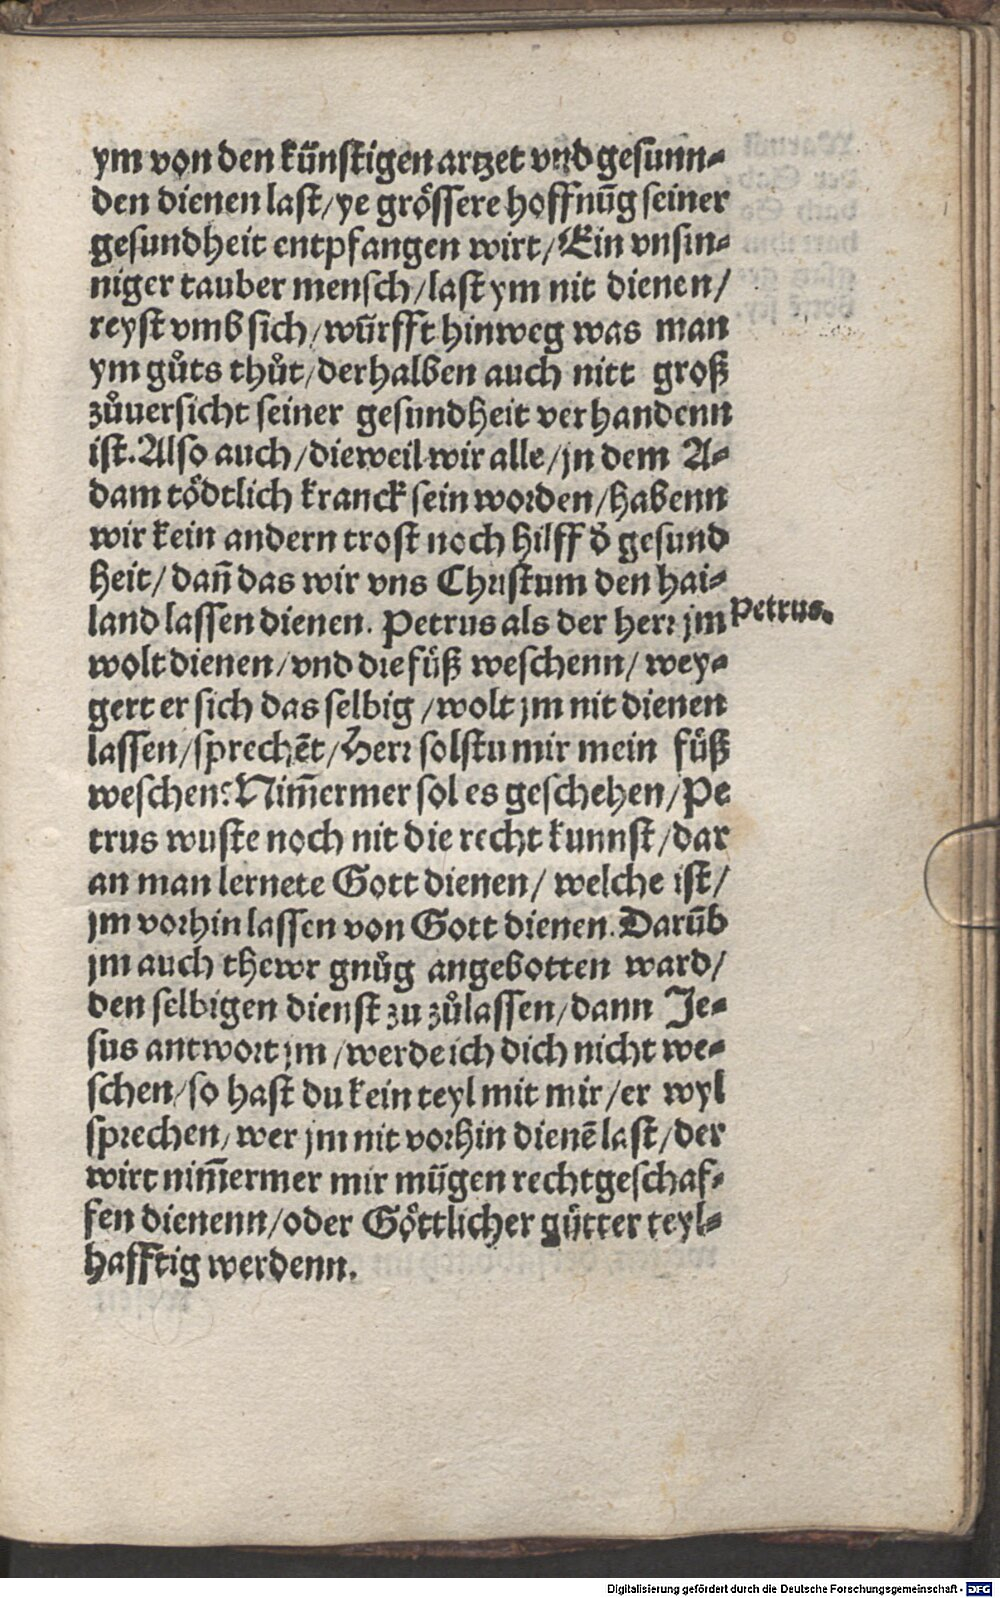 ym von den künstigen artzet vnd gesunn⸗
den dienen last/ye grössere hoffnūg seiner
gesundheit entpfangen wirt/Ein vnsin⸗
niger tauber mensch/last ym nit dienen/
reyst vmb sich/würfft hinweg was man
ym gůts thůt/derhalben auch nitt groß
zůuersicht seiner gesundheit verhandenn
ist. Also auch/dieweil wir alle/jn dem A⸗
dam tödtlich kranck sein worden/habenn
wir kein andern trost noch hilff d̄ gesund
heit/dan̄ das wir vns Christum den hai⸗
land lassen dienen. Petrus als der herr jm
Petrus.
wolt dienen/vnd die füß weschenn/wey⸗
gert er sich das selbig/wolt jm nit dienen
lassen/sprechēt/Herr solstu mir mein füß
weschen? Nim̄ermer sol es geschehen/Pe
trus wuste noch nit die recht kunnst/dar
an man lernete Gott dienen/welche ist/
jm vorhin lassen von Gott dienen. Darūb
jm auch thewr gnůg angebotten ward/
den selbigen dienst zu zůlassen/dann Je⸗
sus antwort jm/werde ich dich nicht we⸗
schen/so hast du kein teyl mit mir/er wyl
sprechen/wer jm nit vorhin dienē last/der
wirt nim̄ermer mir mügen rechtgeschaf⸗
fen dienenn/oder Göttlicher gütter teyl⸗
hafftig werdenn.
Digitalisierung gefördert durch die Deutsche Forschungsgemeinschaft - DFG